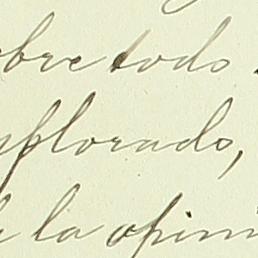 bre todo
splorado,
e la opini